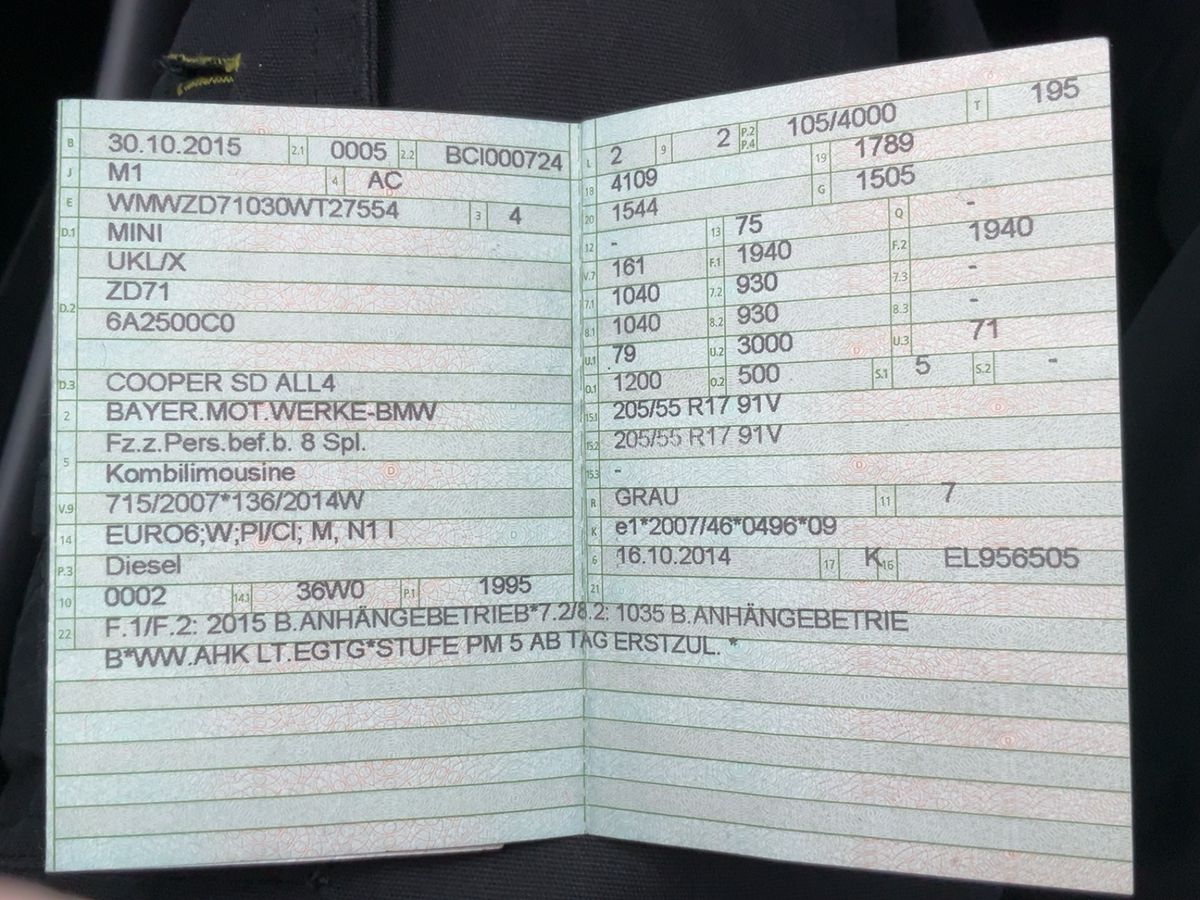 B 30.10.2015 2.1 0005 2.2 BCI000724
J M1 4 AC
E WMWZD71030WT27554 3 4
D.1 MINI
UKL/X
D.2 ZD71
6A2500C0
D.3 COOPER SD ALL4
2 BAYER.MOT.WERKE-BMW
5 Fz.z.Pers.bef.b. 8 Spl.
Kombilimousine
V.9 715/2007*136/2014W
14 EURO6;W;PI/CI; M, N1 I
P.3 Diesel
10 0002 14.1 36W0 P.1 1995
L 2 9 2 P.2 P.4 105/4000 T 195
18 4109 19 1789
20 1544 G 1505
12 - 13 75 Q -
V.7 161 F.1 1940 F.2 1940
7.1 1040 7.2 930 7.3 -
8.1 1040 8.2 930 8.3 -
U.1 79 U.2 3000 U.3 71
O.1 1200 O.2 500 S.1 5 S.2 -
15.1 205/55 R17 91V
15.2 205/55 R17 91V
15.3 -
R GRAU 11 7
K e1*2007/46*0496*09
6 16.10.2014 17 K 16 EL956505
21
22 F.1/F.2: 2015 B.ANHÄNGEBETRIEB*7.2/8.2: 1035 B.ANHÄNGEBETRIE
B*WW.AHK LT.EGTG*STUFE PM 5 AB TAG ERSTZUL. *